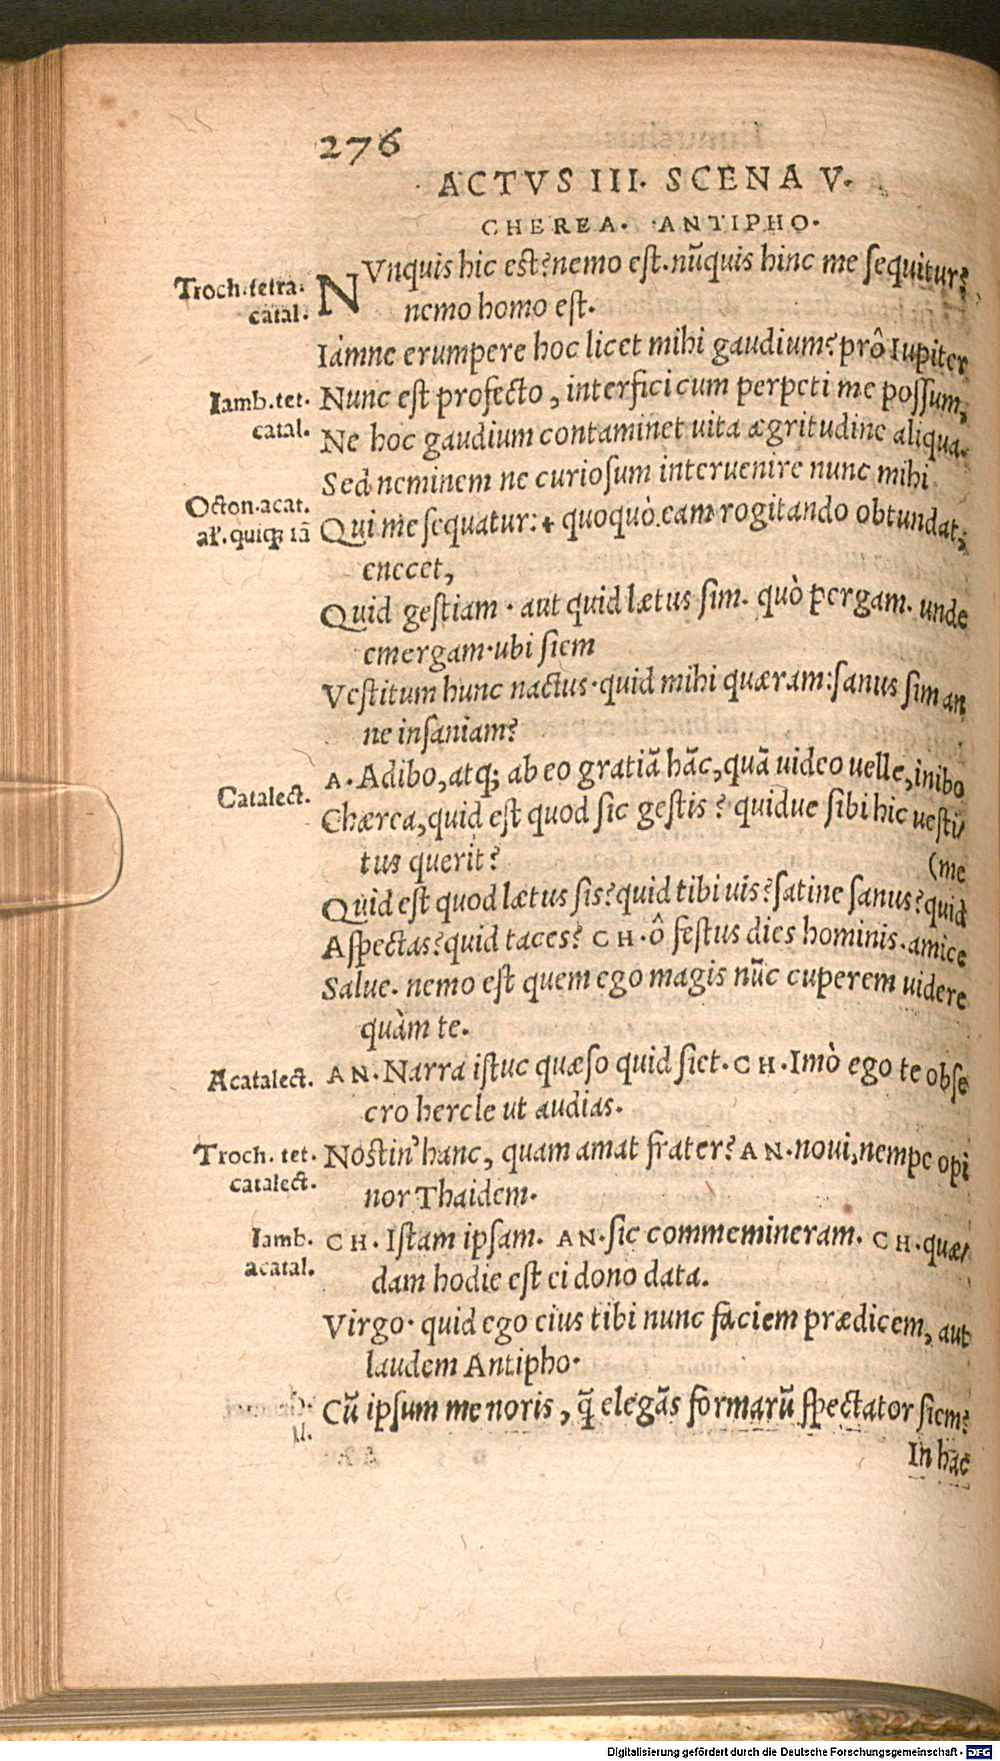 276
ACTVS III. SCENA V.
CHEREA. ANTIPHO.
Troch.tetra.
catal.
NVnquis hic est?nemo est.nūquis hinc me sequitur?
nemo homo est.
Iámne erumpere hoc licet mihi gaudium?prô Iupiter
Iamb.tet.
catal.
Nunc est profecto, interfici cum perpeti me possum,
Ne hoc gaudium contaminet uita ægritudine aliqua.
Sed neminem ne curiosum interuenire nunc mihi
Octon.acat.
al'.quiqꝫ iā
Qui me sequatur: quoquò eam rogitando obtundat,
enecet,
Quid gestiam. aut quid lætus sim. quò pergam. unde
emergam.ubi siem
Vestitum hunc nactus.quid mihi quæram:sanus sim an
ne insaniam?
Catalect.
A.Adibo,atqꝫ ab eo gratiā hāc,quā uideo uelle,inibo
Chærea,quid est quod sic gestis? quidue sibi hic uesti/
tus querit?
(me
Quid est quod lætus sis?quid tibi uis?satine sanus?quid
Aspectas?quid taces? CH.ô festus dies hominis.amice
Salue. nemo est quem ego magis nūc cuperem uidere
quàm te.
Acatalect.
AN.Narra istuc quæso quid siet.CH.Imò ego te obse
cro hercle ut audias.
Troch. tet.
catalect.
Nostin' hanc, quam amat frater? AN.noui,nempe opi
nor Thaidem.
Iamb.
acatal.
CH. Istam ipsam. AN.sic commemineram. CH.quæ/
dam hodie est ei dono data.
Virgo. quid ego eius tibi nunc faciem prædicem, aut
laudem Antipho.
Cū ipsum me noris, q̄ elegās formarū spectator siem?
In hāc
Digitalisierung gefördert durch die Deutsche Forschungsgemeinschaft - DFG